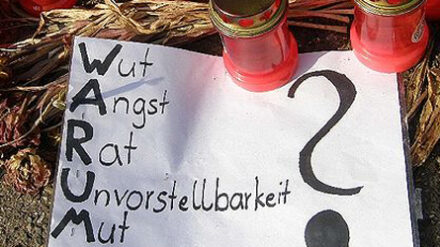 Wut
Angst
Rat
Unvorstellbarkeit
Mut
?